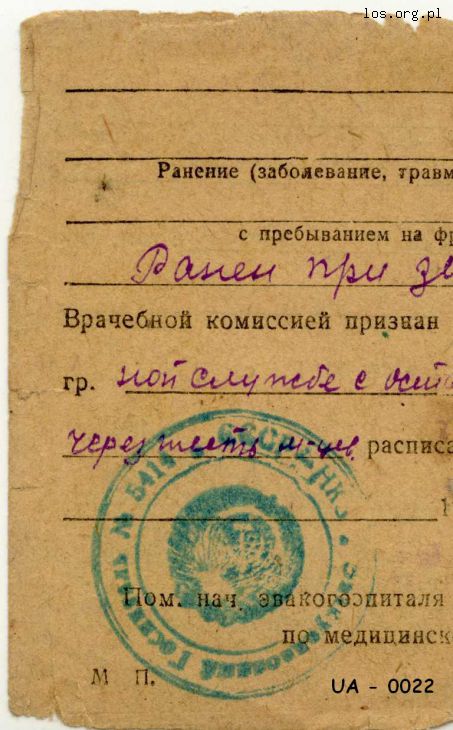 los.org.pl
Ранение (заболевание, травм
с пребыванием на фр
Ранен при
Врачебной комиссией признан
гр. ной службе с
через шесть м-цев. расписа
Эвакуационный Госпиталь № 5414
Пом. нач. эвакогоспиталя
по медицинск
М П.
UA - 0022